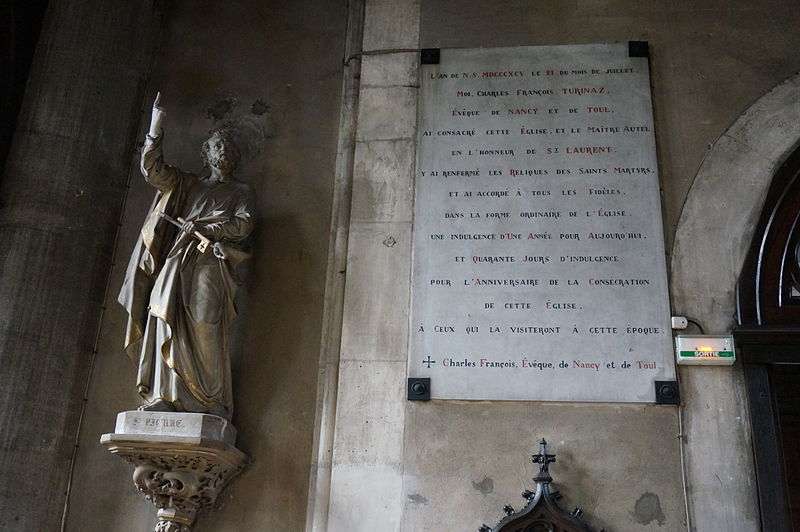 L'AN DE N.S. MDCCCXCV, LE 21 DU MOIS DE JUILLET,
MOI, CHARLES FRANÇOIS TURINAZ,
ÉVÊQUE DE NANCY ET DE TOUL,
AI CONSACRÉ CETTE ÉGLISE, ET LE MAÎTRE AUTEL
EN L'HONNEUR DE ST LAURENT.
Y AI RENFERMÉ LES RELIQUES DES SAINTS MARTYRS,
ET AI ACCORDÉ À TOUS LES FIDÈLES,
DANS LA FORME ORDINAIRE DE L'ÉGLISE,
UNE INDULGENCE D'UNE ANNÉE POUR AUJOURD'HUI,
ET QUARANTE JOURS D'INDULGENCE
POUR L'ANNIVERSAIRE DE LA CONSÉCRATION
DE CETTE ÉGLISE,
À CEUX QUI LA VISITERONT À CETTE ÉPOQUE.
Charles François, Évêque, de Nancy et de Toul
S. PIERRE
SORTIE